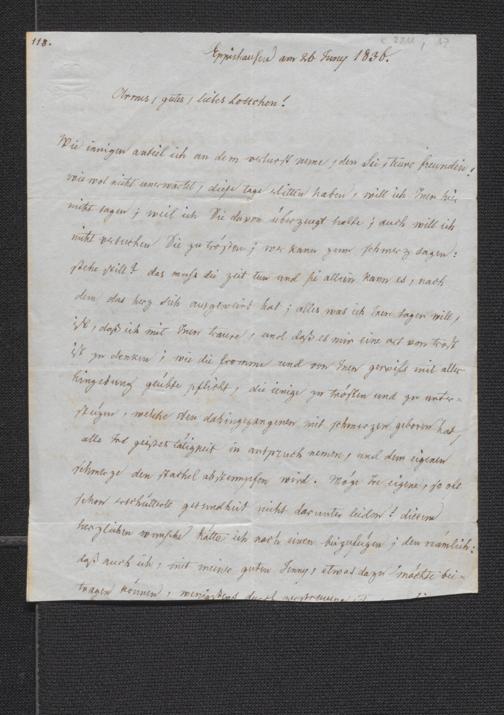 118.
Eppishausen am 26 Juny 1836.
Armes, gutes, liebes Lottchen!
Wie innigen anteil ich an dem verlurst neme, den Sie, teure freundin!
wie wol nicht unerwartet, diese tage erlitten haben, will ich Inen hier
nicht sagen; weil ich Sie davon überzeugt halte; auch will ich
nicht versuchen Sie zu trösten; wer kann zum schmerz sagen:
stehe still? das muss die zeit tun und sie allein kann es, nach
dem das herz sich ausgeweint hat; alles was ich Inen sagen will,
ist, daß ich mit Inen traure, und daß es mir eine art von trost
ist zu denken, wie die fromme und von Inen gewiss mit aller
hingebung geübte pflicht, die ienige zu trösten und zu unter-
stüzen, welche den dahingegangenen mit schmerzen geboren hat,
alle Ire geistestätigkeit in anspruch nemen, und dem eigenen
schmerze den stachel abstumpfen wird. Möge Ire eigene, so oft
schon erschütterte gesundheit nicht darunter leiden! disem
herzlichen wunsche hätte ich noch einen beizufügen; den nämlich:
daß auch ich, mit meiner guten Jenny, etwas dazu möchte bei-
tragen können, wenigstens durch zerstreuung